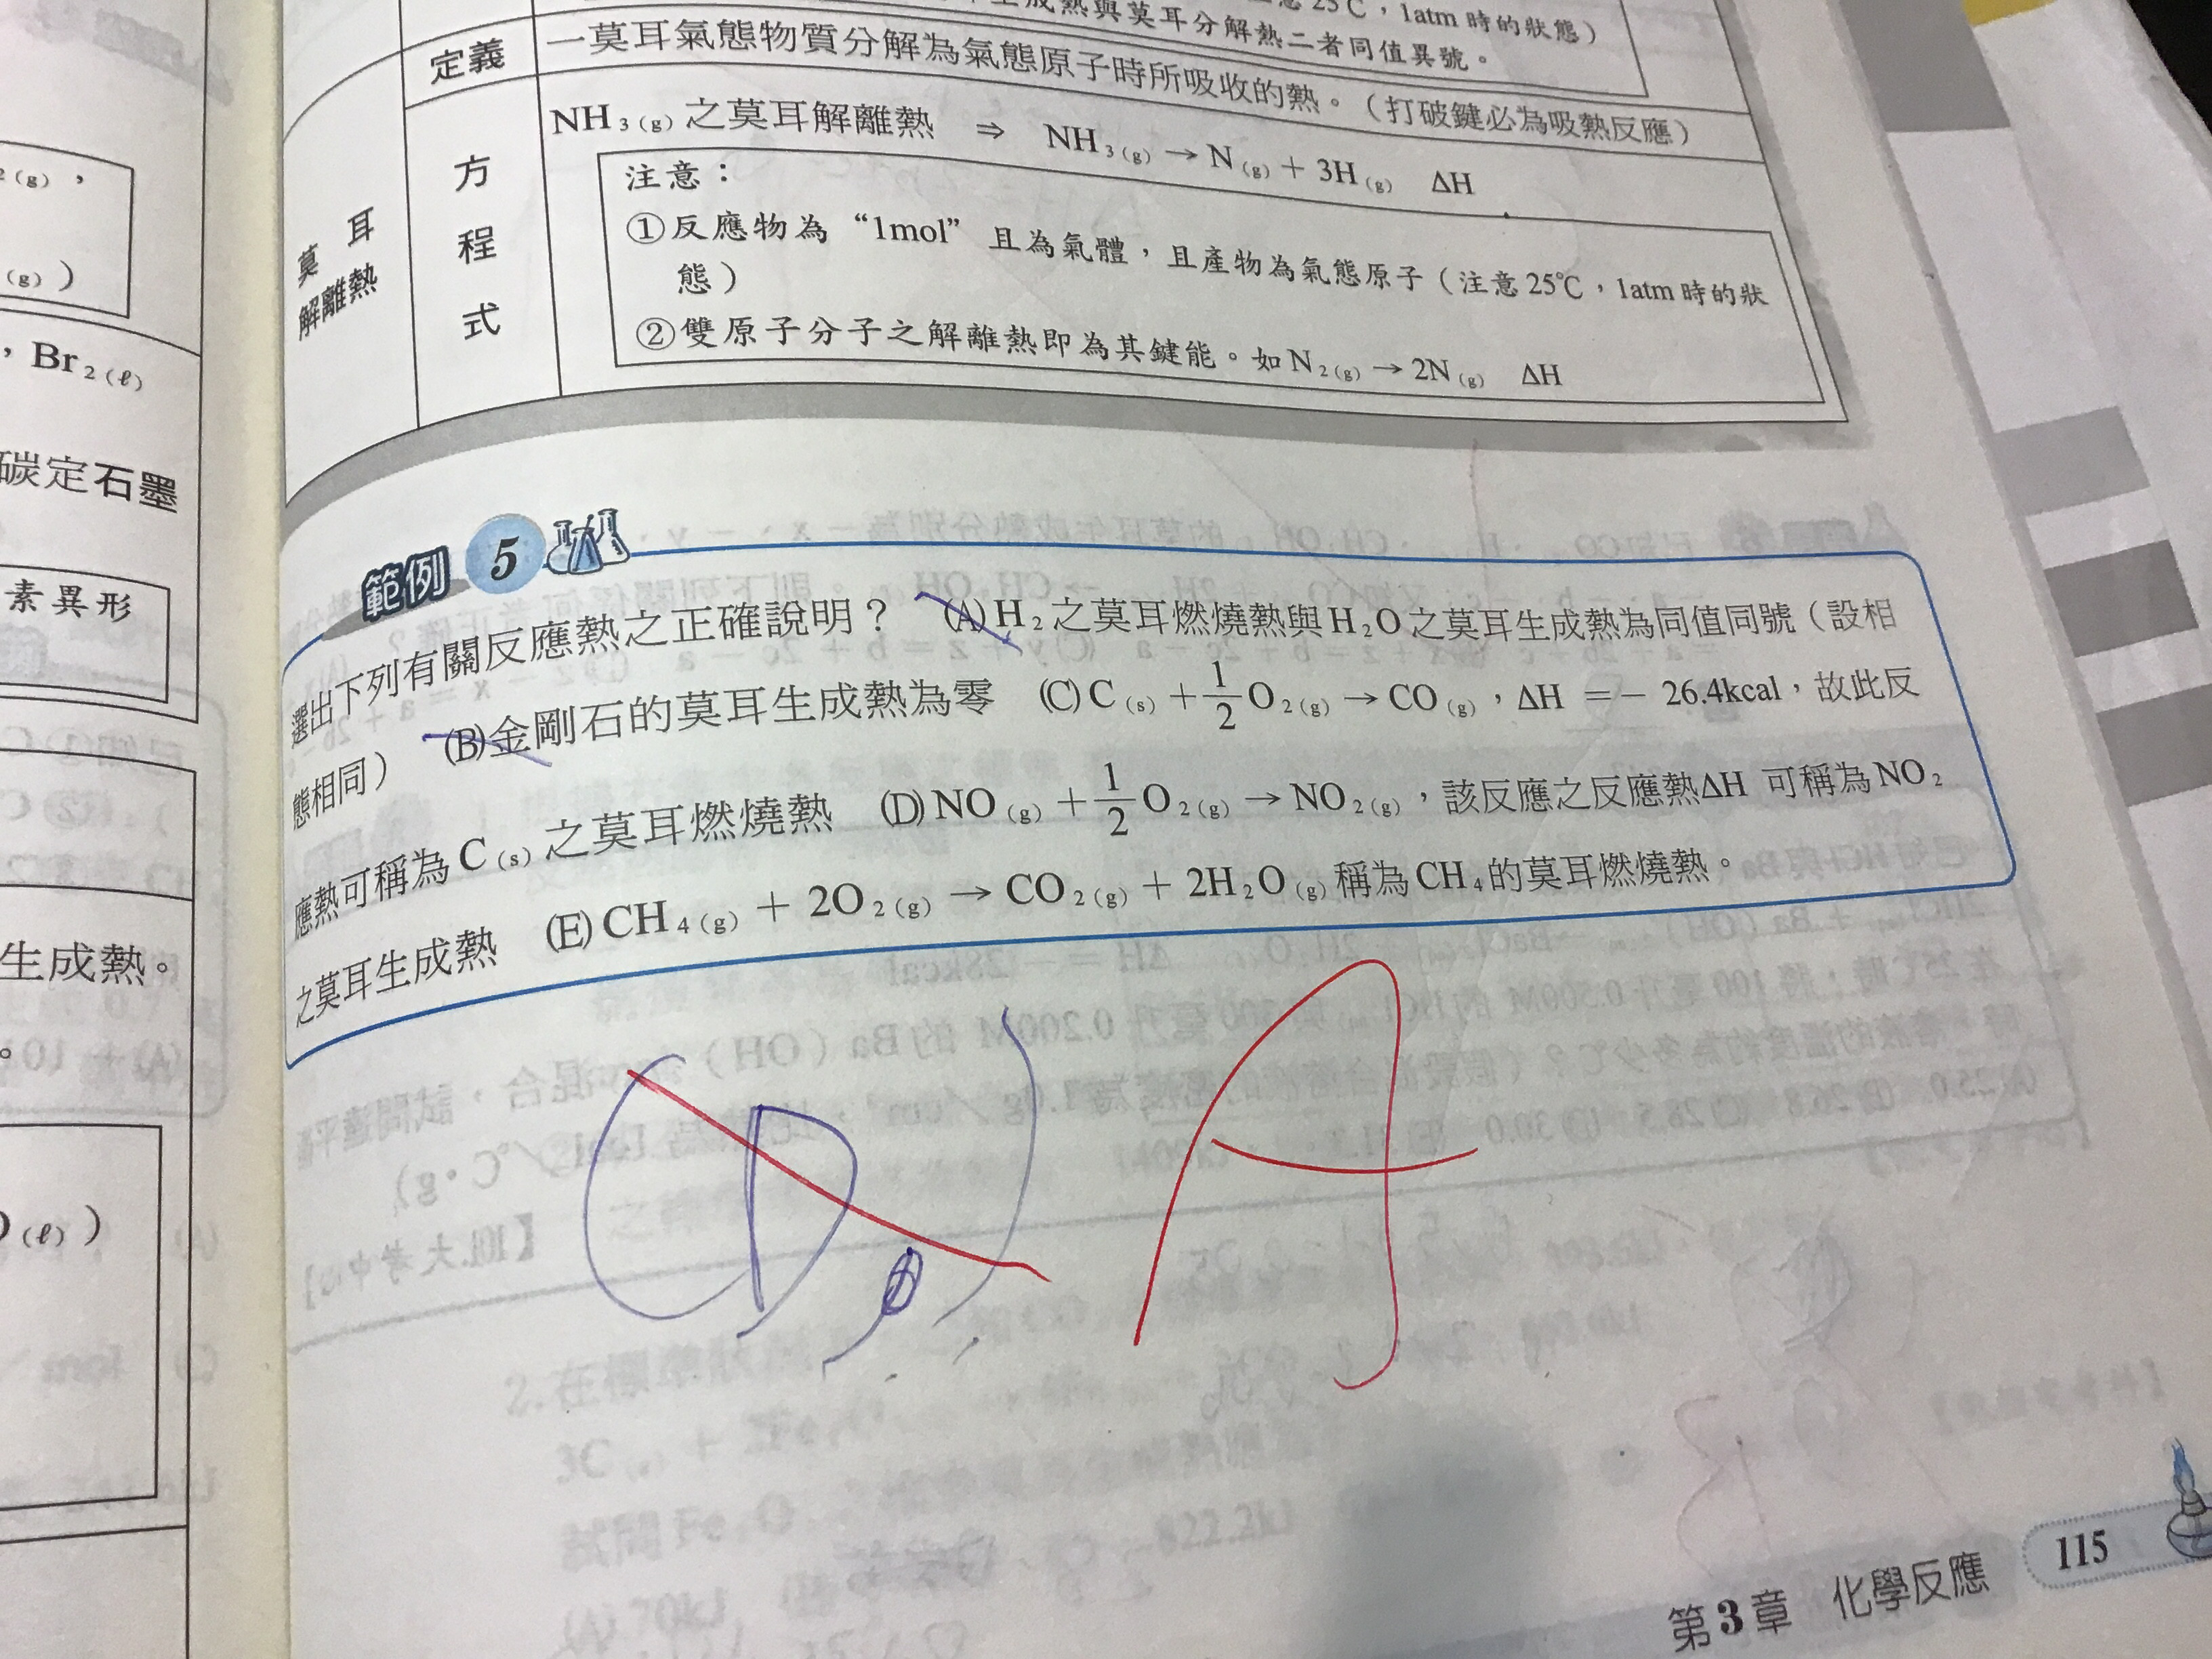 25℃，1atm 時的狀態）
生成熱與莫耳分解熱二者同值異號。
莫耳解離熱
定義
一莫耳氣態物質分解為氣態原子時所吸收的熱。（打破鍵必為吸熱反應）
方程式
NH₃(g) 之莫耳解離熱 ⇒ NH₃(g) → N(g) + 3H(g) ΔH
注意：
①反應物為“1mol”且為氣體，且產物為氣態原子（注意 25℃，1atm 時的狀
態）
②雙原子分子之解離熱即為其鍵能。如 N₂(g) → 2N(g) ΔH
範例 5
選出下列有關反應熱之正確說明？ (A) H₂ 之莫耳燃燒熱與 H₂O 之莫耳生成熱為同值同號（設相
態相同） (B)金剛石的莫耳生成熱為零 (C) C(s) + 1/2 O₂(g) → CO(g)，ΔH = − 26.4kcal，故此反
應熱可稱為 C(s) 之莫耳燃燒熱 (D) NO(g) + 1/2 O₂(g) → NO₂(g)，該反應之反應熱ΔH 可稱為 NO₂
之莫耳生成熱 (E) CH₄(g) + 2O₂(g) → CO₂(g) + 2H₂O(g) 稱為 CH₄ 的莫耳燃燒熱。
A
第 3 章 化學反應 115
₂(g)，
(g)）
，Br₂(ℓ)
碳定石墨
素異形
生成熱。
(ℓ)）